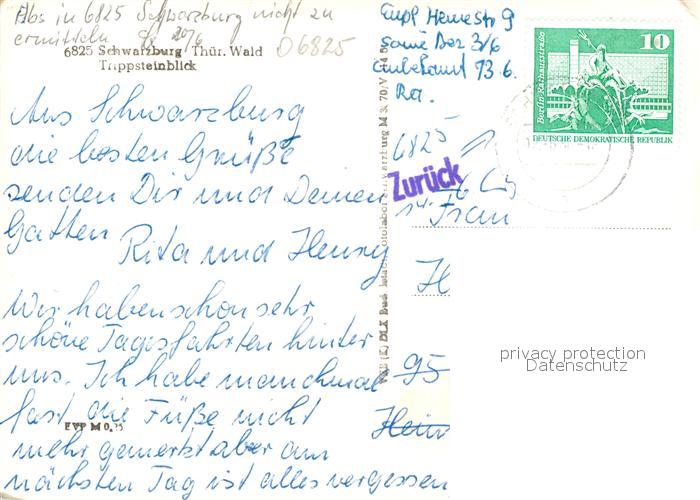 Abs in 6825 Schwarzburg nicht zu
ermitteln 20/6
D6825
6825 Schwarzburg Thür. Wald
Trippsteinblick
Aus Schwarzburg
die besten Grüße
senden Dir und Deinen
Gatten
Rita und Henry
Wir haben schon sehr
schöne Tagesfahrten hinter
uns. Ich habe manchmal
fast die Füße nicht
mehr gemerkt aber am
nächsten Tag ist alles vergessen
EVP M 0,25
Empf 9
3/6
13 6.
10
Berlin-Rathausstraße
DEUTSCHE DEMOKRATISCHE REPUBLIK
6825
Zurück
Frau
H
95
privacy protection
Datenschutz